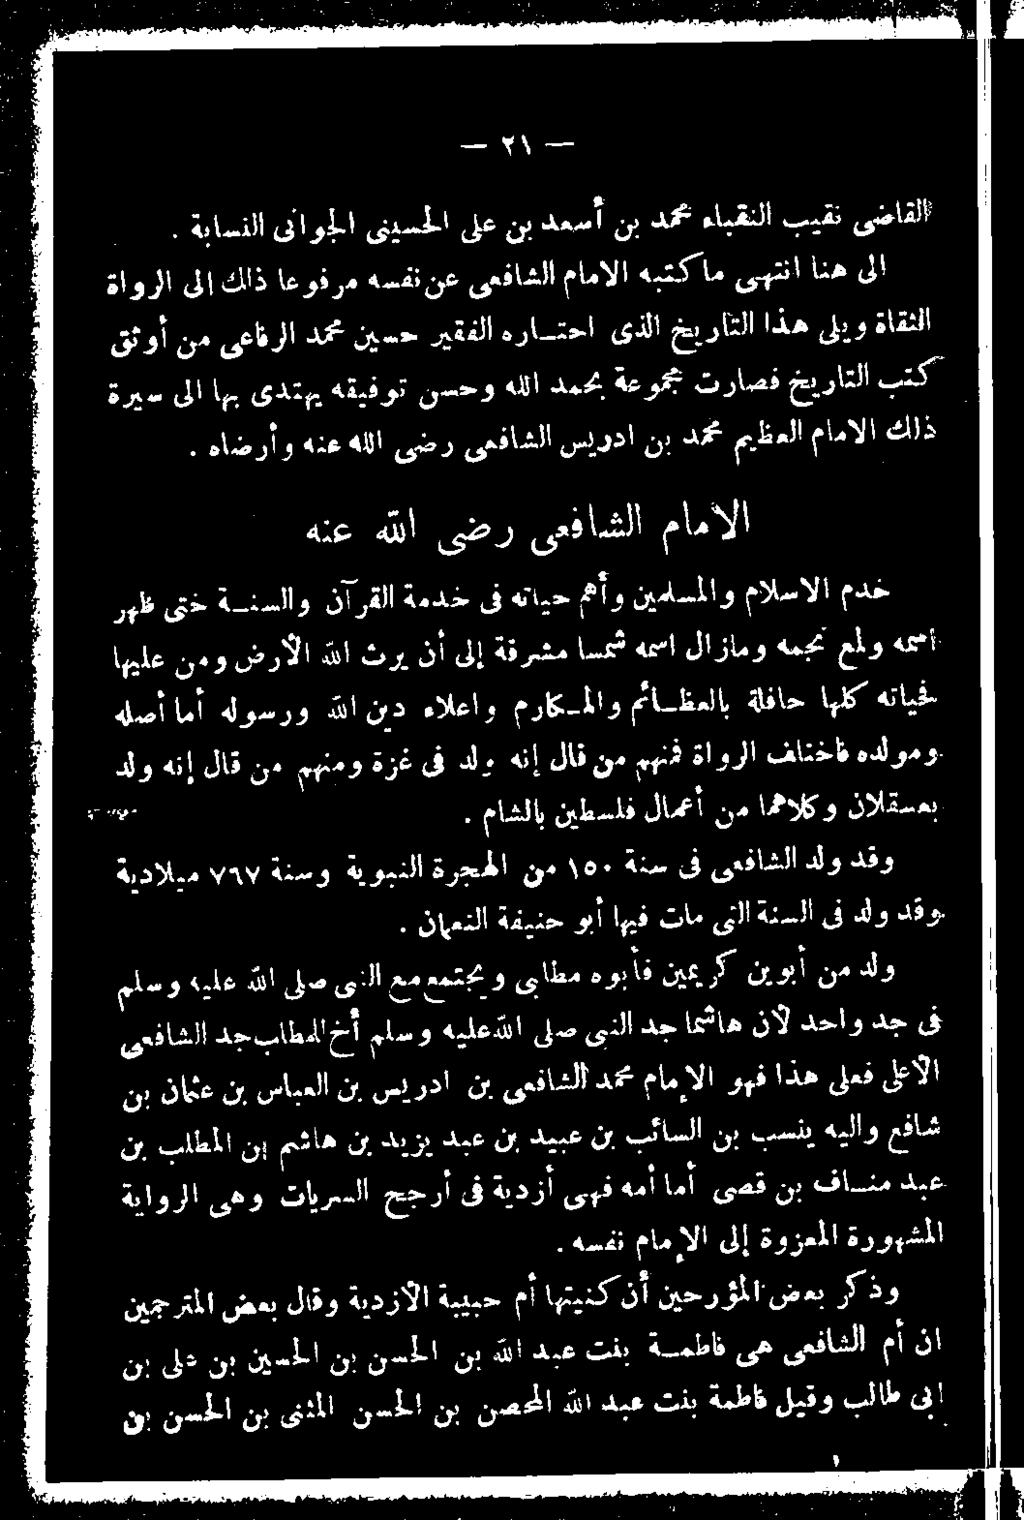 — ٢١ —
القاضى نقيب النقباء محمد بن أسعد بن على الحسينى الجوانى النسابة .
الى هنا انتهى ماكتبه الامام الشافعى عن نفسه مرفوعا ذلك الى الرواة
الثقاة ويلى هذا التاريخ الذى احتاره الفقير حسين محمد الرفاعى من أوثق
كتب التاريخ فصارت مجموعة بحمد الله وحسن توفيقه يهتدى بها الى سيرة
ذلك الامام العظيم محمد بن ادريس الشافعى رضى الله عنه وأرضاه .
الامام الشافعى رضى الله عنه
خدم الاسلام والمسلمين وأهم حياته فى خدمة القرآن والسنة ختى ظهر
اسمه ولمع نجمه ومازال اسمه شمسا مشرقة إلى أن يرث الله الأرض ومن عليها
فحياته كلها حافلة بالعظائم والمكارم واعلاء دين الله ورسوله أما أصله
ومولده فاختلف الرواة فمنهم من قال إنه ولد فى غزة ومنهم من قال إنه ولد
بعسقلان وكلاهما من أعمال فلسطين بالشام .
وقد ولد الشافعى فى سنة ١٥٠ من الهجرة النبوية وسنة ٧٦٧ ميلادية
وقد ولد فى السنة التى مات فيها أبو حنيفة النعمان .
ولد من أبوين كريمين فأبوه مطابى ويجتمع مع النبى صلى الله عليه وسلم
فى جد واحد لأن هاشما جد النبى صلى الله عليه وسلم أخ المطاب جد الشافعى
الأعلى فعلى هذا فهو الإمام محمد الشافعى بن ادريس بن العباس بن عثمان بن
شافع واليه ينسب بن السائب بن عبيد بن عبد يزيد بن هاشم بن المطلب بن
عبد مناف بن قصى أما أمه فهى أزدية فى أرجح السريات وهى الرواية
المشهورة المعزوة إلى الإمام نفسه .
وذكر بعض المؤرحين أن كنيتها أم حبيبة الأزدية وقال بعض المترجمين
ان أم الشافعى هى فاطمة بنت عبد الله بن الحسن بن الحسين بن على بن
ابى طالب وقيل فاطمة بنت عبد الله المحصن بن الحسن المثنى بن الحسن بن